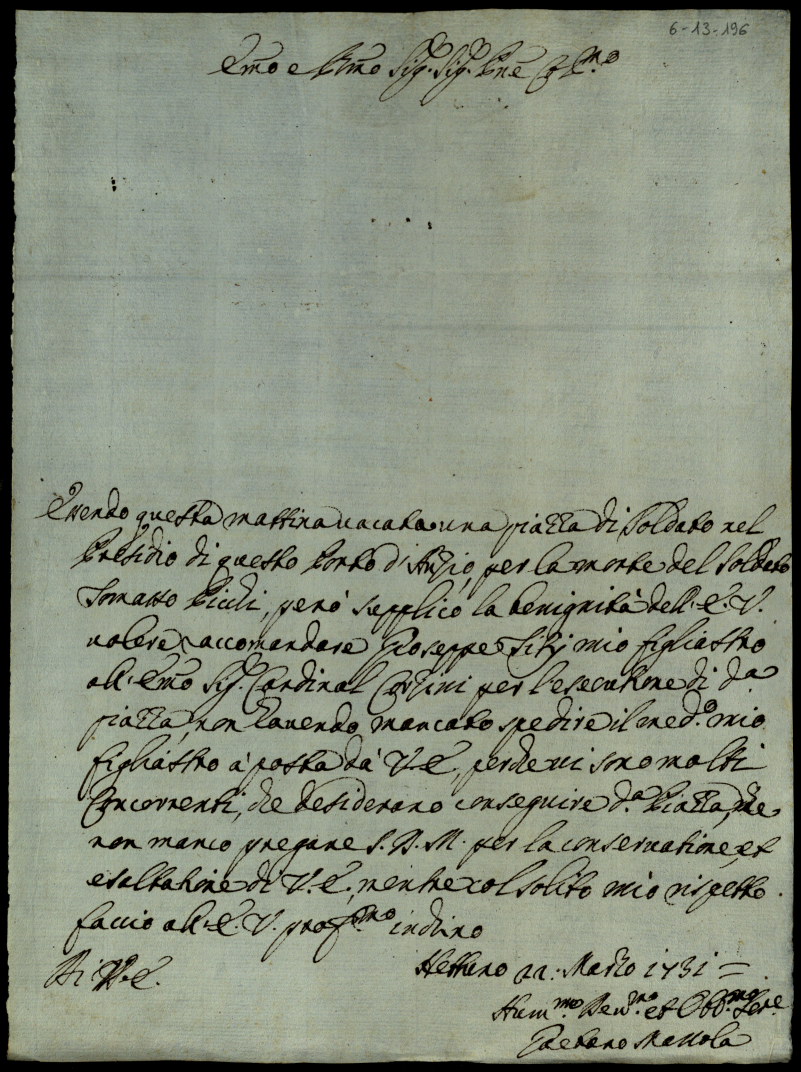 6-13-196
Em̃o e Rm̃o Sig.r Sig.r Pñe Col.mo
Essendo questa mattina vacata una piazza di Soldato nel
Presidio di questo Porto d'Anzio, per la morte del Soldato
Tomasso, però supplico la benignità dell'E. V.
volere raccomandare Gioseppe Sitij mio figliastro
all'Em̃o Sig.r Cardinal Corsini per l'esecutione di d.a
piazza, non havendo mancato spedire il med.o mio
figliastro à posta dà V. E., perche vi sono molti
Concorrenti, che desiderano conseguire d.a Piazza, che
non manco pregare S. D. M. per la conservatione, et
esaltatione di V. E., mentre col solito mio rispetto
faccio all'E. V. prof.mo inchino
Di V. E.
Nettuno 22: Marzo 1731 =
Hum.mo Dev.mo et Obb.mo Ser.e
Gaetano Massola